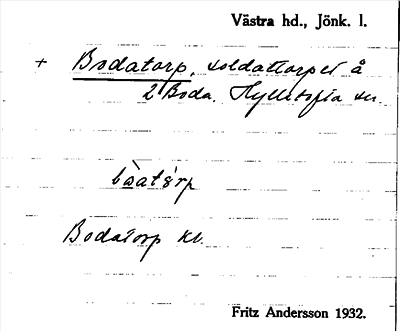 Västra hd., Jönk. l.
+ Bodatorp, soldattorpet å
2 Boda. Hylletofta sn.
Bodatorp kl.
Fritz Andersson 1932.